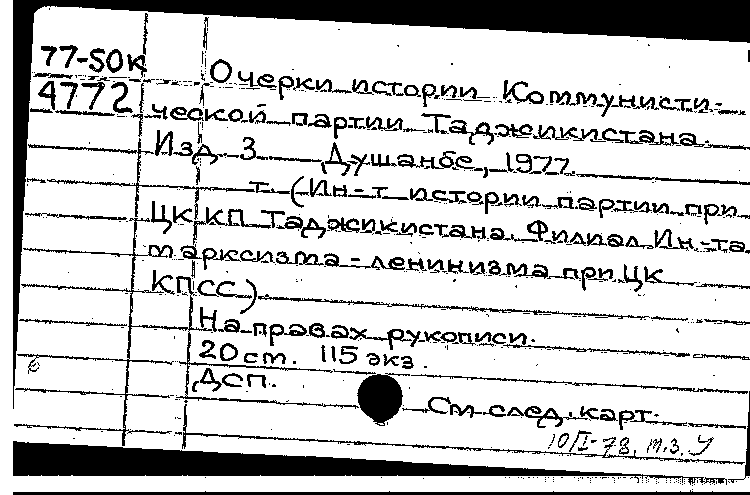 77-50к Очерки истории Коммунисти-
4772 ческой партии Таджикистана.
Изд. 3 Душанбе, 1977.
т. (Ин-т истории партии при
ЦК КП Таджикистана. Филиал Ин-та
марксизма-ленинизма при ЦК
КПСС).
На правах рукописи.
20см. 115 экз.
ДСП.
См. след. карт.
10/I-78, т.з. У